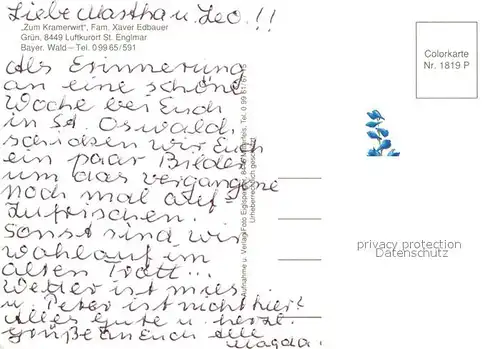 Liebe Martha u. Leo!!
"Zum Kramerwirt", Fam. Xaver Edbauer
Grün, 8449 Luftkurort St. Englmar
Bayer. Wald – Tel. 0 99 65/591
Als Erinnerung
an eine schöne
Woche bei Euch
in St. Oswald,
schicken wir Euch
ein paar Bilder
um das vergangene
noch mal auf-
zufrischen.
Sonst sind wir
wohlauf im
alten Trott...
Wetter ist mies
u. Peter ist nicht hier?
Alles Gute u. herzl.
Grüße an Euch alle
Magda.
Aufnahme u. Verlag Foto
Urheberrechtlich geschützt
Colorkarte
Nr. 1819 P
privacy protection
Datenschutz